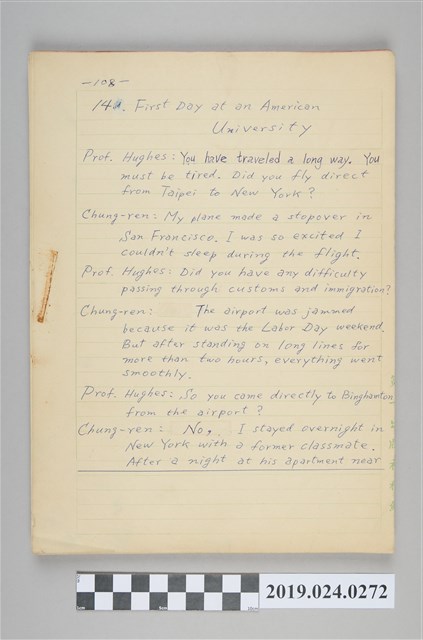 -108-
14a. First Day at an American
University
Prof. Hughes: You have traveled a long way. You
must be tired. Did you fly direct
from Taipei to New York?
Chung-ren: My plane made a stopover in
San Francisco. I was so excited I
couldn't sleep during the flight.
Prof. Hughes: Did you have any difficulty
passing through customs and immigration?
Chung-ren: The airport was jammed
because it was the Labor Day weekend.
But after standing on long lines for
more than two hours, everything went
smoothly.
Prof. Hughes: So you came directly to Binghamton
from the airport?
Chung-ren: No, I stayed overnight in
New York with a former classmate.
After a night at his apartment near
2019.024.0272